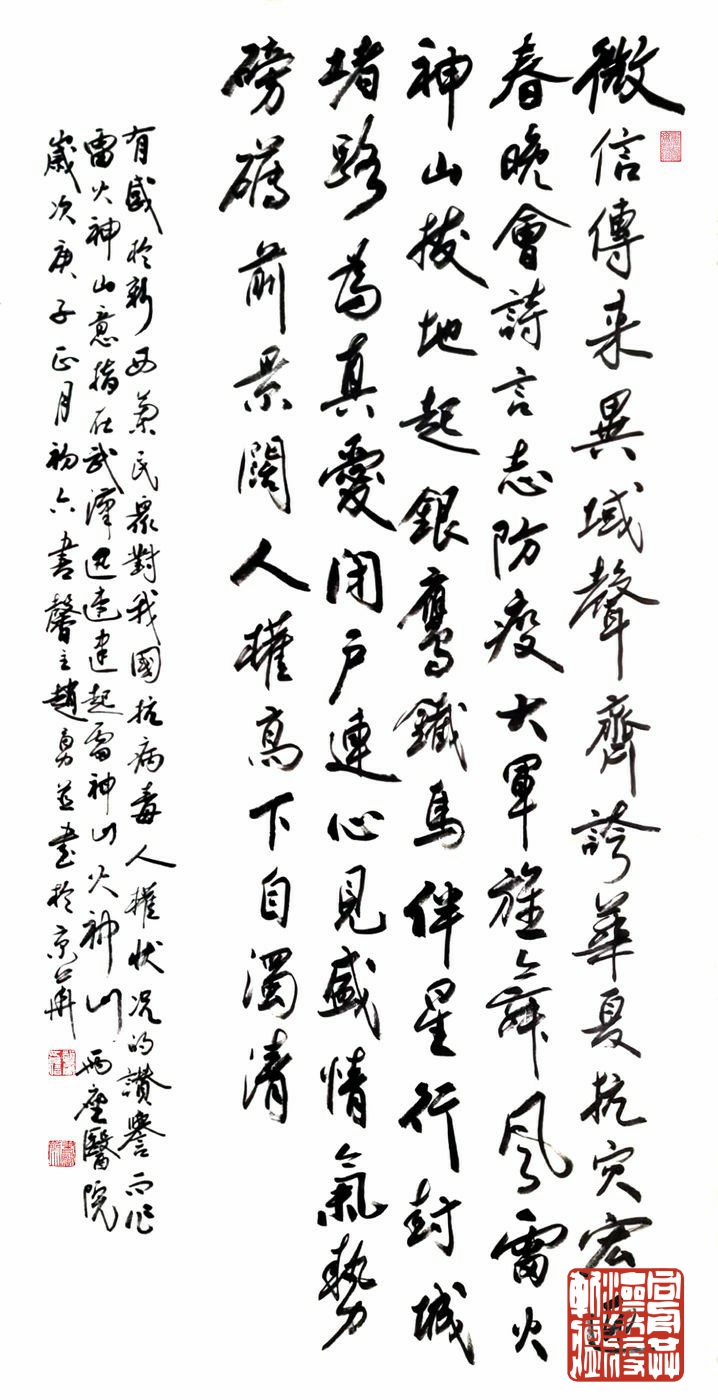 微信傳来異域聲齊誇華夏抗灾宏
春晚會詩言志防疫大軍旌舞風雷火
神山拔地起銀鷹鐵馬伴星行封城
堵路為真愛閉户連心見盛情氣勢
磅礴前景闊人權高下自濁清
有感於新西蘭民眾對我國抗病毒人權狀况的讚譽而作
雷火神山意指在武漢迅速建起雷神山火神山兩座醫院
歲次庚子正月初六書馨主趙勇並書於京華